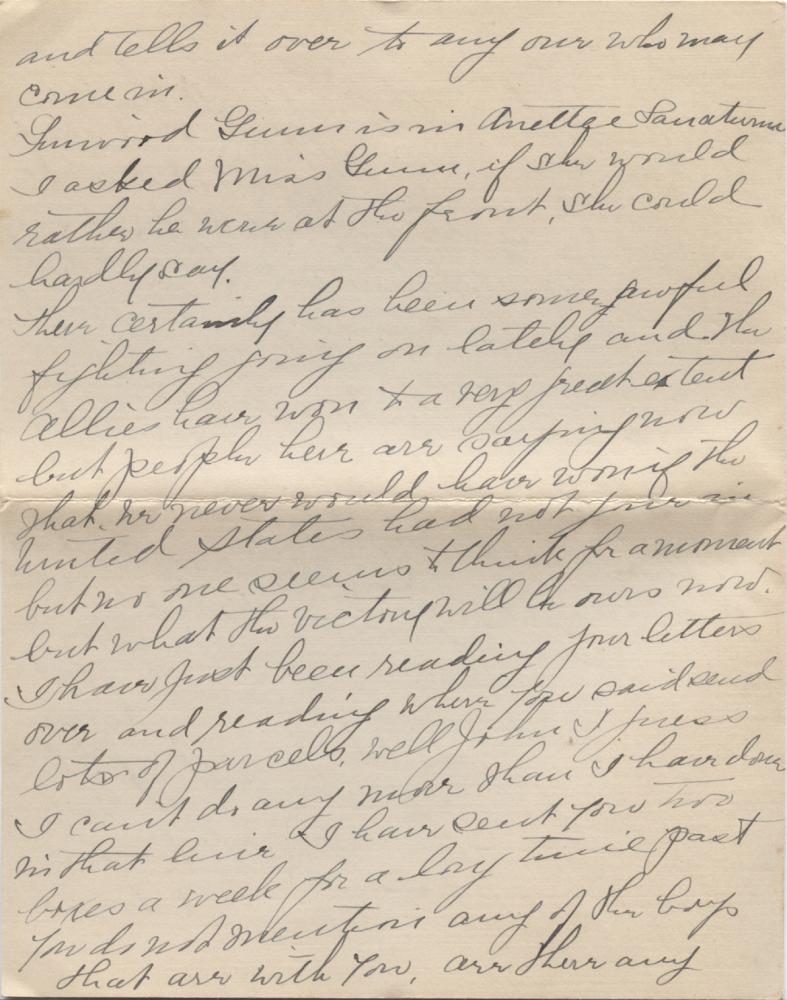 and tells it over to any one who may
come in.
Gunn is in Sanaturm
I asked Miss Gunn, if she would
rather he were at the front, she could
hardly say.
There certainly has been some awful
fighting going on lately and the
Allies have won to a very great extent
but people here are saying now
that we never would have won if the
United States had not gone in
but no one seems to think for a moment
but what the victory will be ours now.
I have just been reading your letters
over and reading where you said send
lots of parcels, well John I guess
I cant do any more than I have done
in that line I have sent you two
boxes a week for a long time past
You do not mention any of the boys
that are with You, are there any